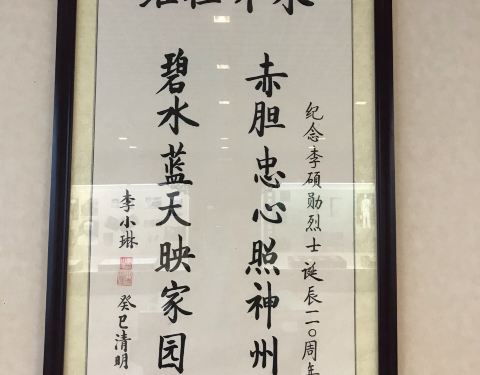 纪念李硕勋烈士诞辰一一〇周年
赤胆忠心照神州
碧水蓝天映家园
李小琳
癸巳清明